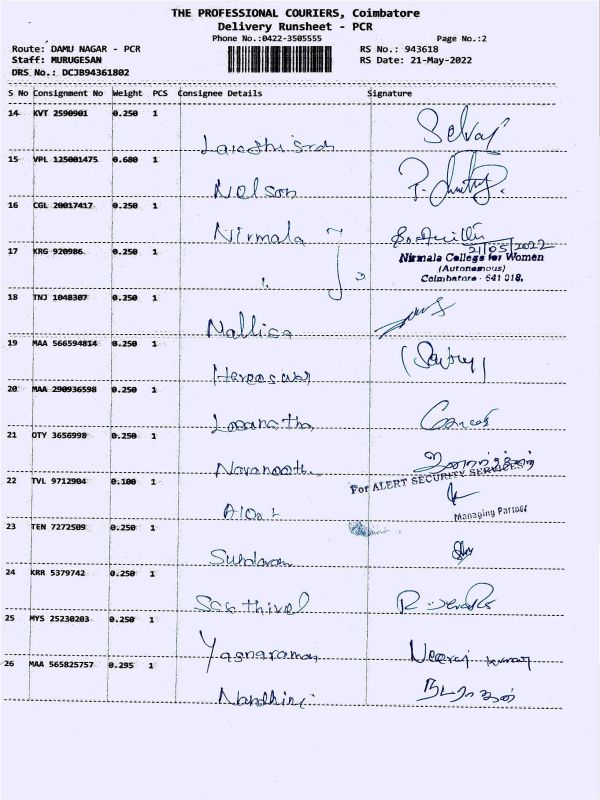 THE PROFESSIONAL COURIERS, Coimbatore
Delivery Runsheet - PCR
Phone No.:0422-3505555 Page No.:2
Route: DAMU NAGAR - PCR RS No.: 943618
Staff: MURUGESAN RS Date: 21-May-2022
DRS No.: DCJB94361802
S No Consignment No Weight PCS Consignee Details Signature
14 KVT 2590901 0.250 1
Selvaj
15 VPL 125001475 0.680 1
Nelson
16 CGL 20017417 0.250 1
Nirmala
21/05/2022
17 KRG 920986 0.250 1
Nirmala College for Women
(Autonomous)
Coimbatore - 641 018.
18 TNJ 1048307 0.250 1
Nallisa
19 MAA 566594814 0.250 1
20 MAA 290936598 0.250 1
Loganatha
21 OTY 3656998 0.250 1
Navaneeth
22 TVL 9712904 0.100 1
For ALERT SECURITY SERVICES
Managing Partner
23 TEN 7272509 0.250 1
Sundaram
24 KRR 5379742 0.250 1
Sakthivel
25 MYS 25230203 0.250 1
Yagnaraman Neeraj kumar
26 MAA 565825757 0.295 1
Nandhini நடராஜன்